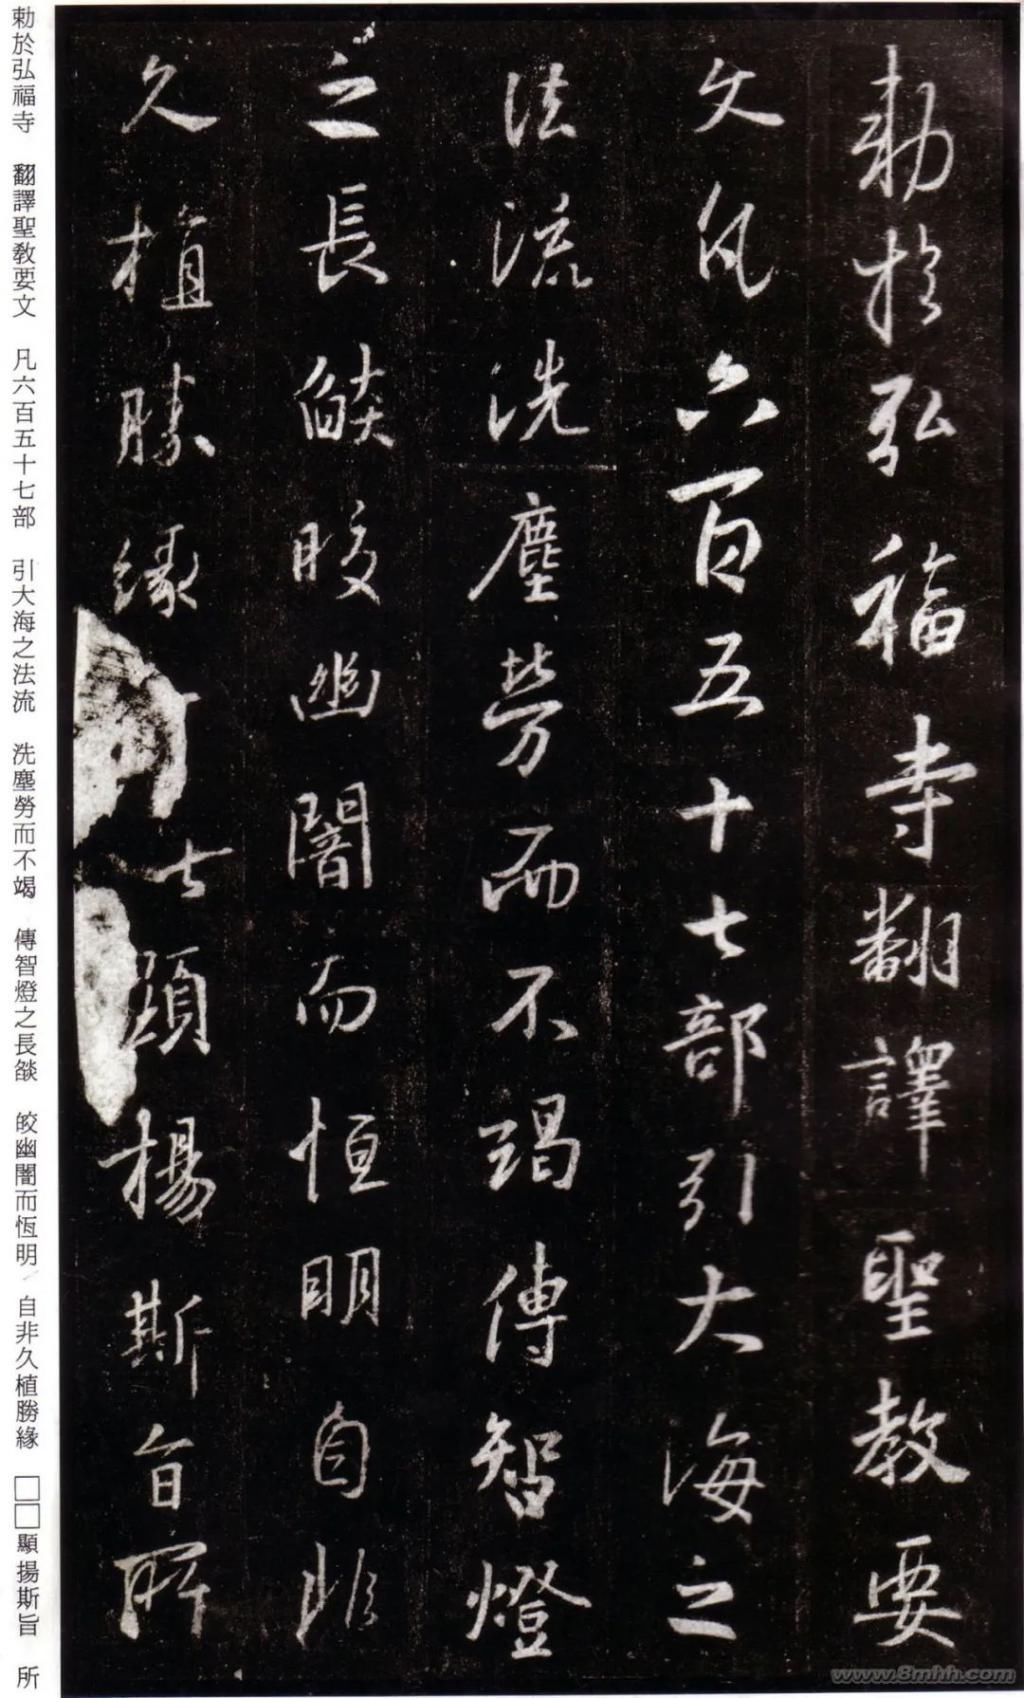 勅於弘福寺翻譯聖教要
文凡六百五十七部引大海之
法流洗塵勞而不竭傳智燈
之長燄皎幽闇而恒明自非
久植勝緣顯揚斯旨所
勅於弘福寺 翻譯聖教要文 凡六百五十七部 引大海之法流 洗塵勞而不竭 傳智燈之長燄 皎幽闇而恆明 自非久植勝緣 □□顯揚斯旨 所
www.8mhh.com